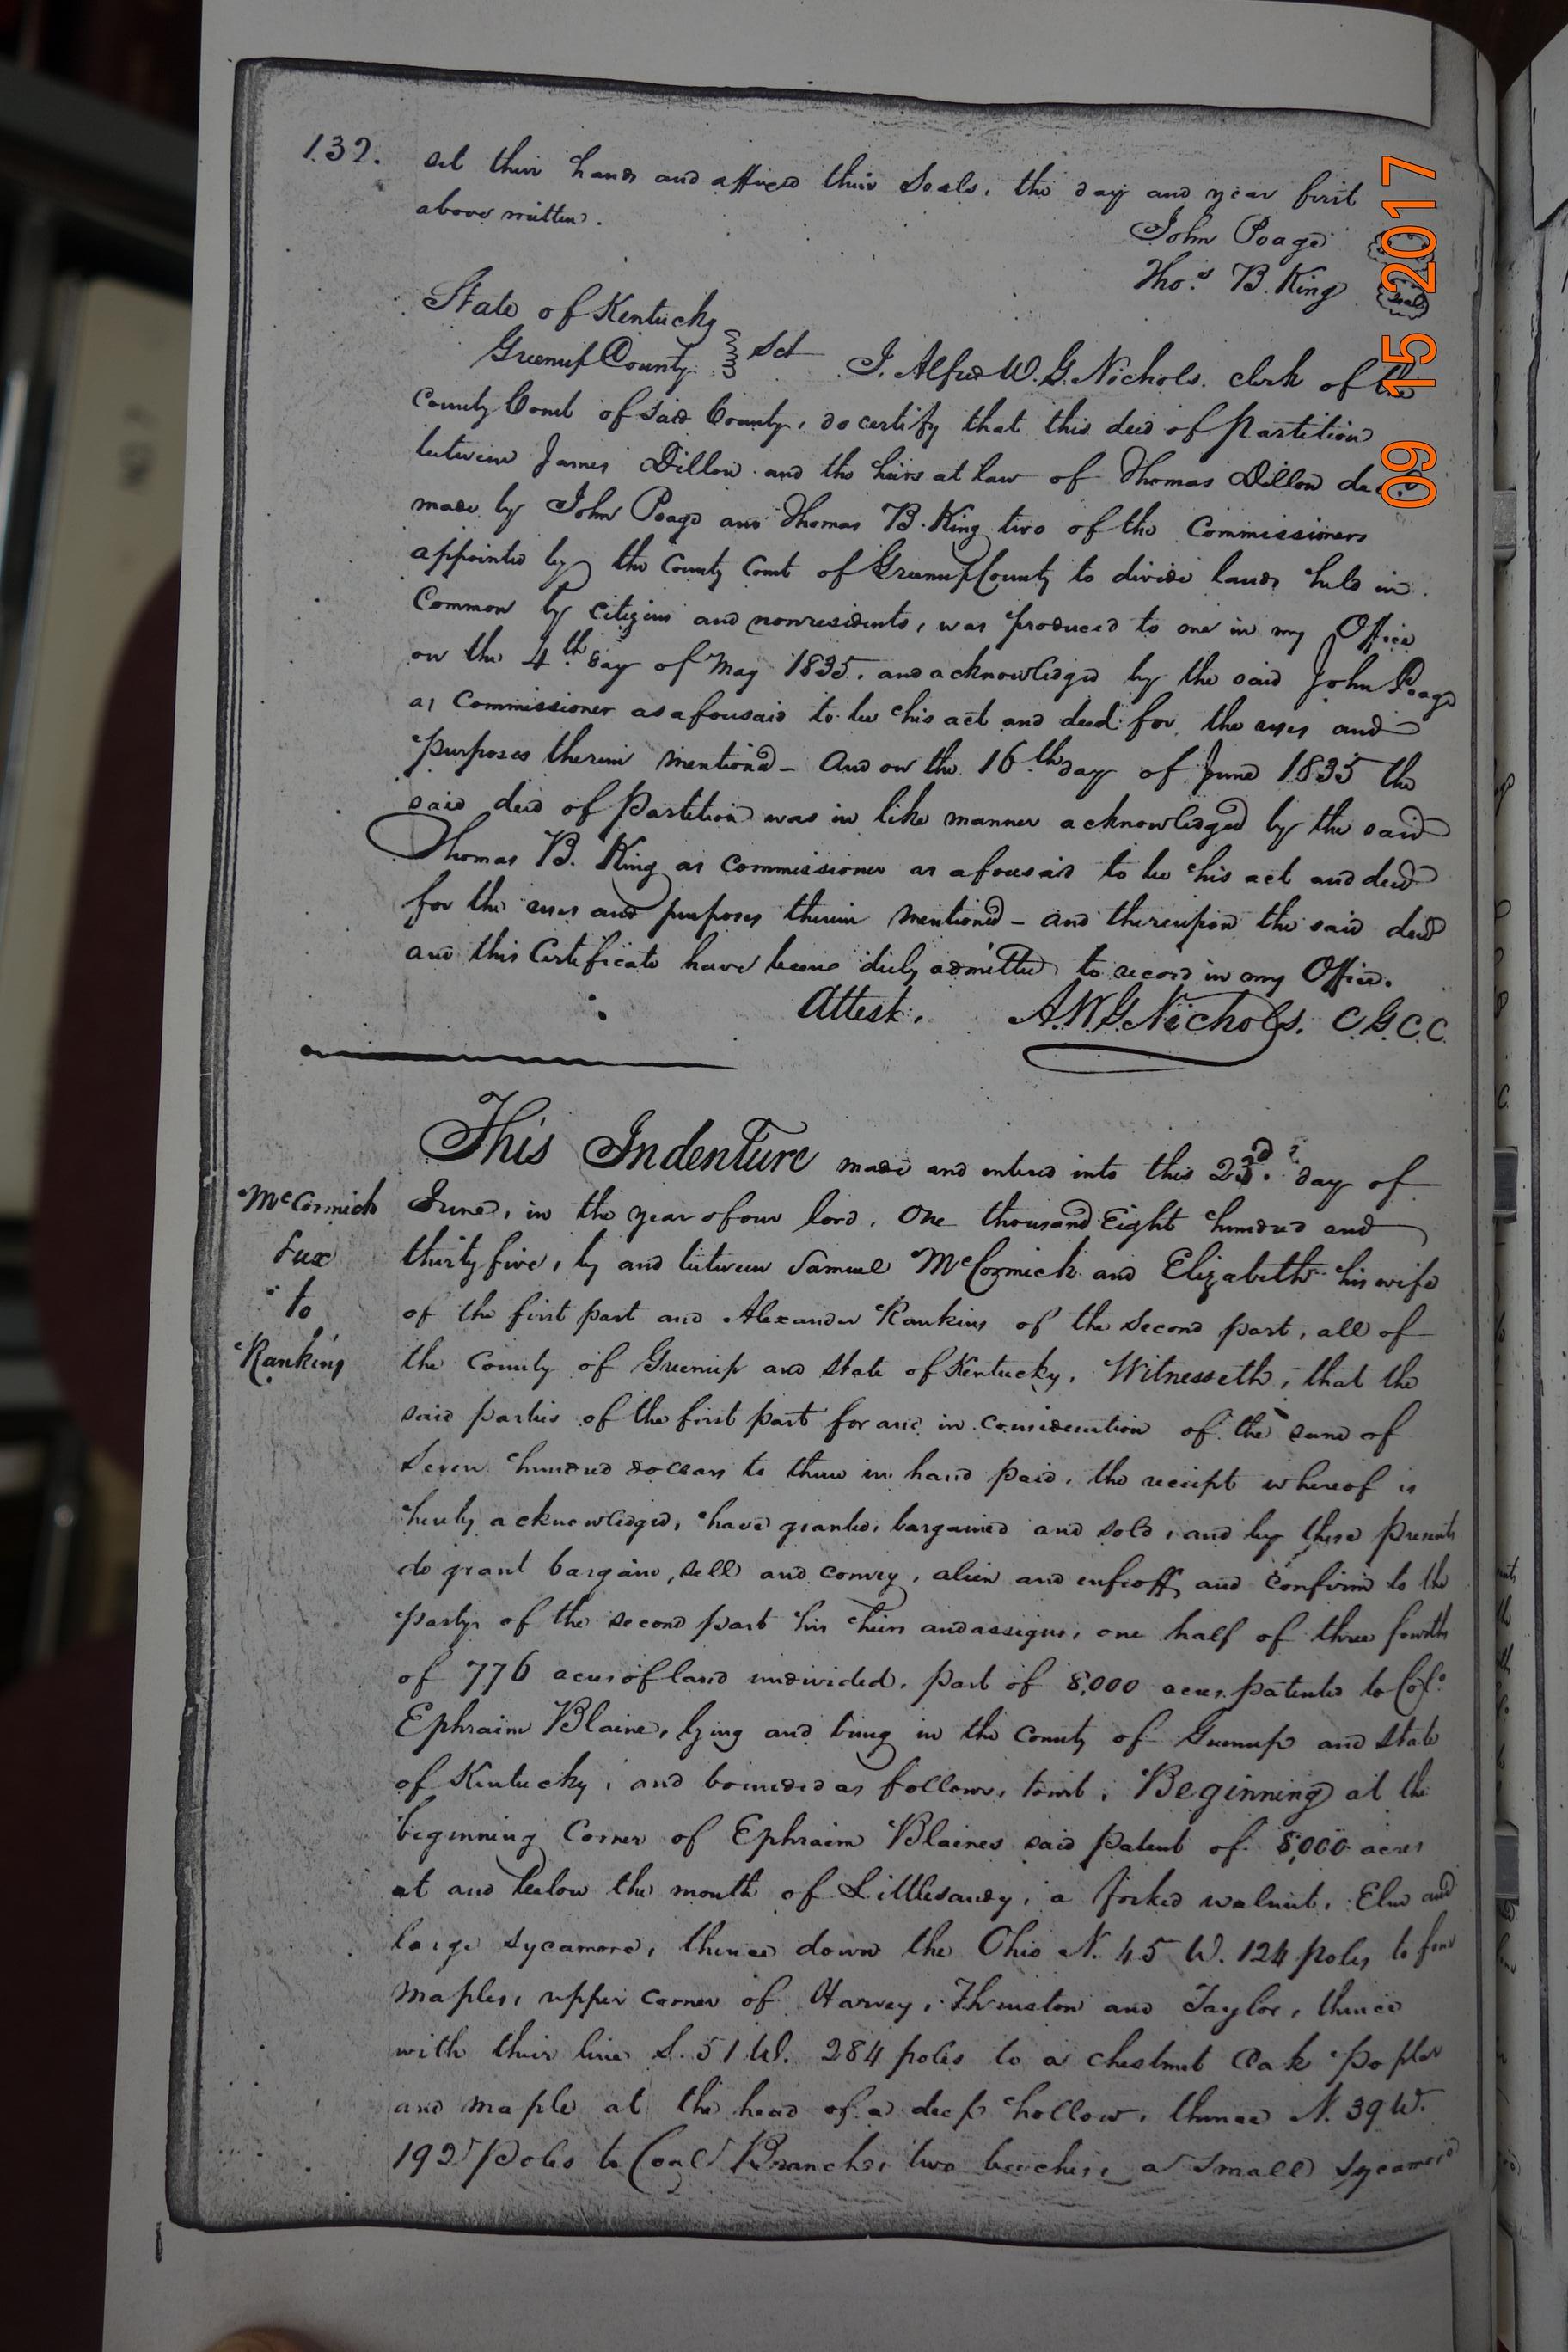 132.
set their hands and affixed their Seals, the day and year first
above written.
John Poage
Thos B. King seal
State of Kentucky
Greenup County Sct I. Alfred W. G. Nichols. clerk of the
County Court of said County, do certify that this deed of Partition
between James Dillon and the heirs at law of Thomas Dillon decd
made by John Poage and Thomas B. King two of the Commissioners
appointed by the County Court of Greenup County to divide lands held in
Common by citizens and nonresidents, was produced to me in my Office
on the 4th day of May 1835. and acknowledged by the said John Poage
as Commissioner as aforesaid to be his act and deed for the uses and
purposes therein mentioned - And on the 16th day of June 1835 the
said deed of Partition was in like manner acknowledged by the said
Thomas B. King as Commissioner as aforesaid to be his act and deed
for the uses and purposes therein mentioned - and thereupon the said deed
and this Certificate have been duly admitted to record in my Office.
Attest. A.W.G. Nichols. C.G.C.C.
McCormick
&ux
to
Rankins
This Indenture made and entered into this 23rd day of
June, in the year of our lord, One thousand Eight hundred and
thirty five, by and between Samuel McCormick and Elizabeth his wife
of the first part and Alexander Rankins of the second part, all of
the County of Greenup and State of Kentucky, Witnesseth, that the
said parties of the first part for and in consideration of the sum of
Seven hundred dollars to them in hand paid, the receipt whereof is
hereby acknowledged, have granted, bargained and sold, and by these presents
do grant bargain, sell and convey, alien and enfeoff, and confirm to the
party of the second part his heirs and assigns, one half of three fourths
of 776 acres of land undivided, part of 8,000 acres patented to Col.
Ephraim Blaine, lying and being in the County of Greenup and State
of Kentucky, and bounded as follows, towit, Beginning at the
beginning Corner of Ephraim Blaines said patent of 8,000 acres
at and below the mouth of Littlesandy, a forked walnut, Elm and
large sycamore, thence down the Ohio N. 45 W. 124 poles to four
maples, upper corner of Harvey, Thruston and Taylor, thence
with their line S. 51 W. 284 poles to a chestnut Oak Poplar
and maple at the head of a deep hollow, thence N. 39 W.
192 poles to Coal Branch, two beeches, a small sycamore
09 15 2017